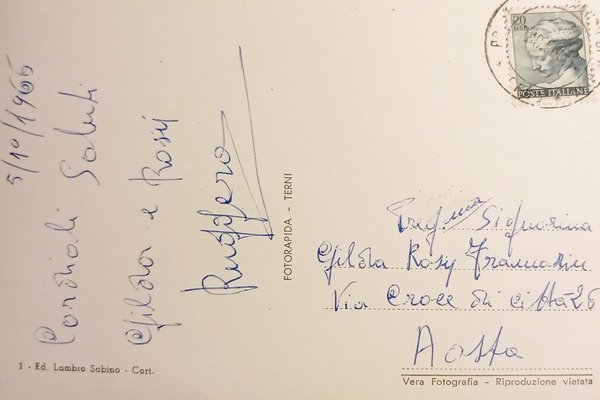 5/10/1966
Cordiali Saluti
Gilda e Rosy
Ruggero
1 - Ed. Lambro Sabino - Cart.
FOTORAPIDA - TERNI
20
POSTE ITALIANE
Preg.ma Signorina
Gilda Rosy
Via Croce di città 26
Aosta
Vera Fotografia - Riproduzione vietata